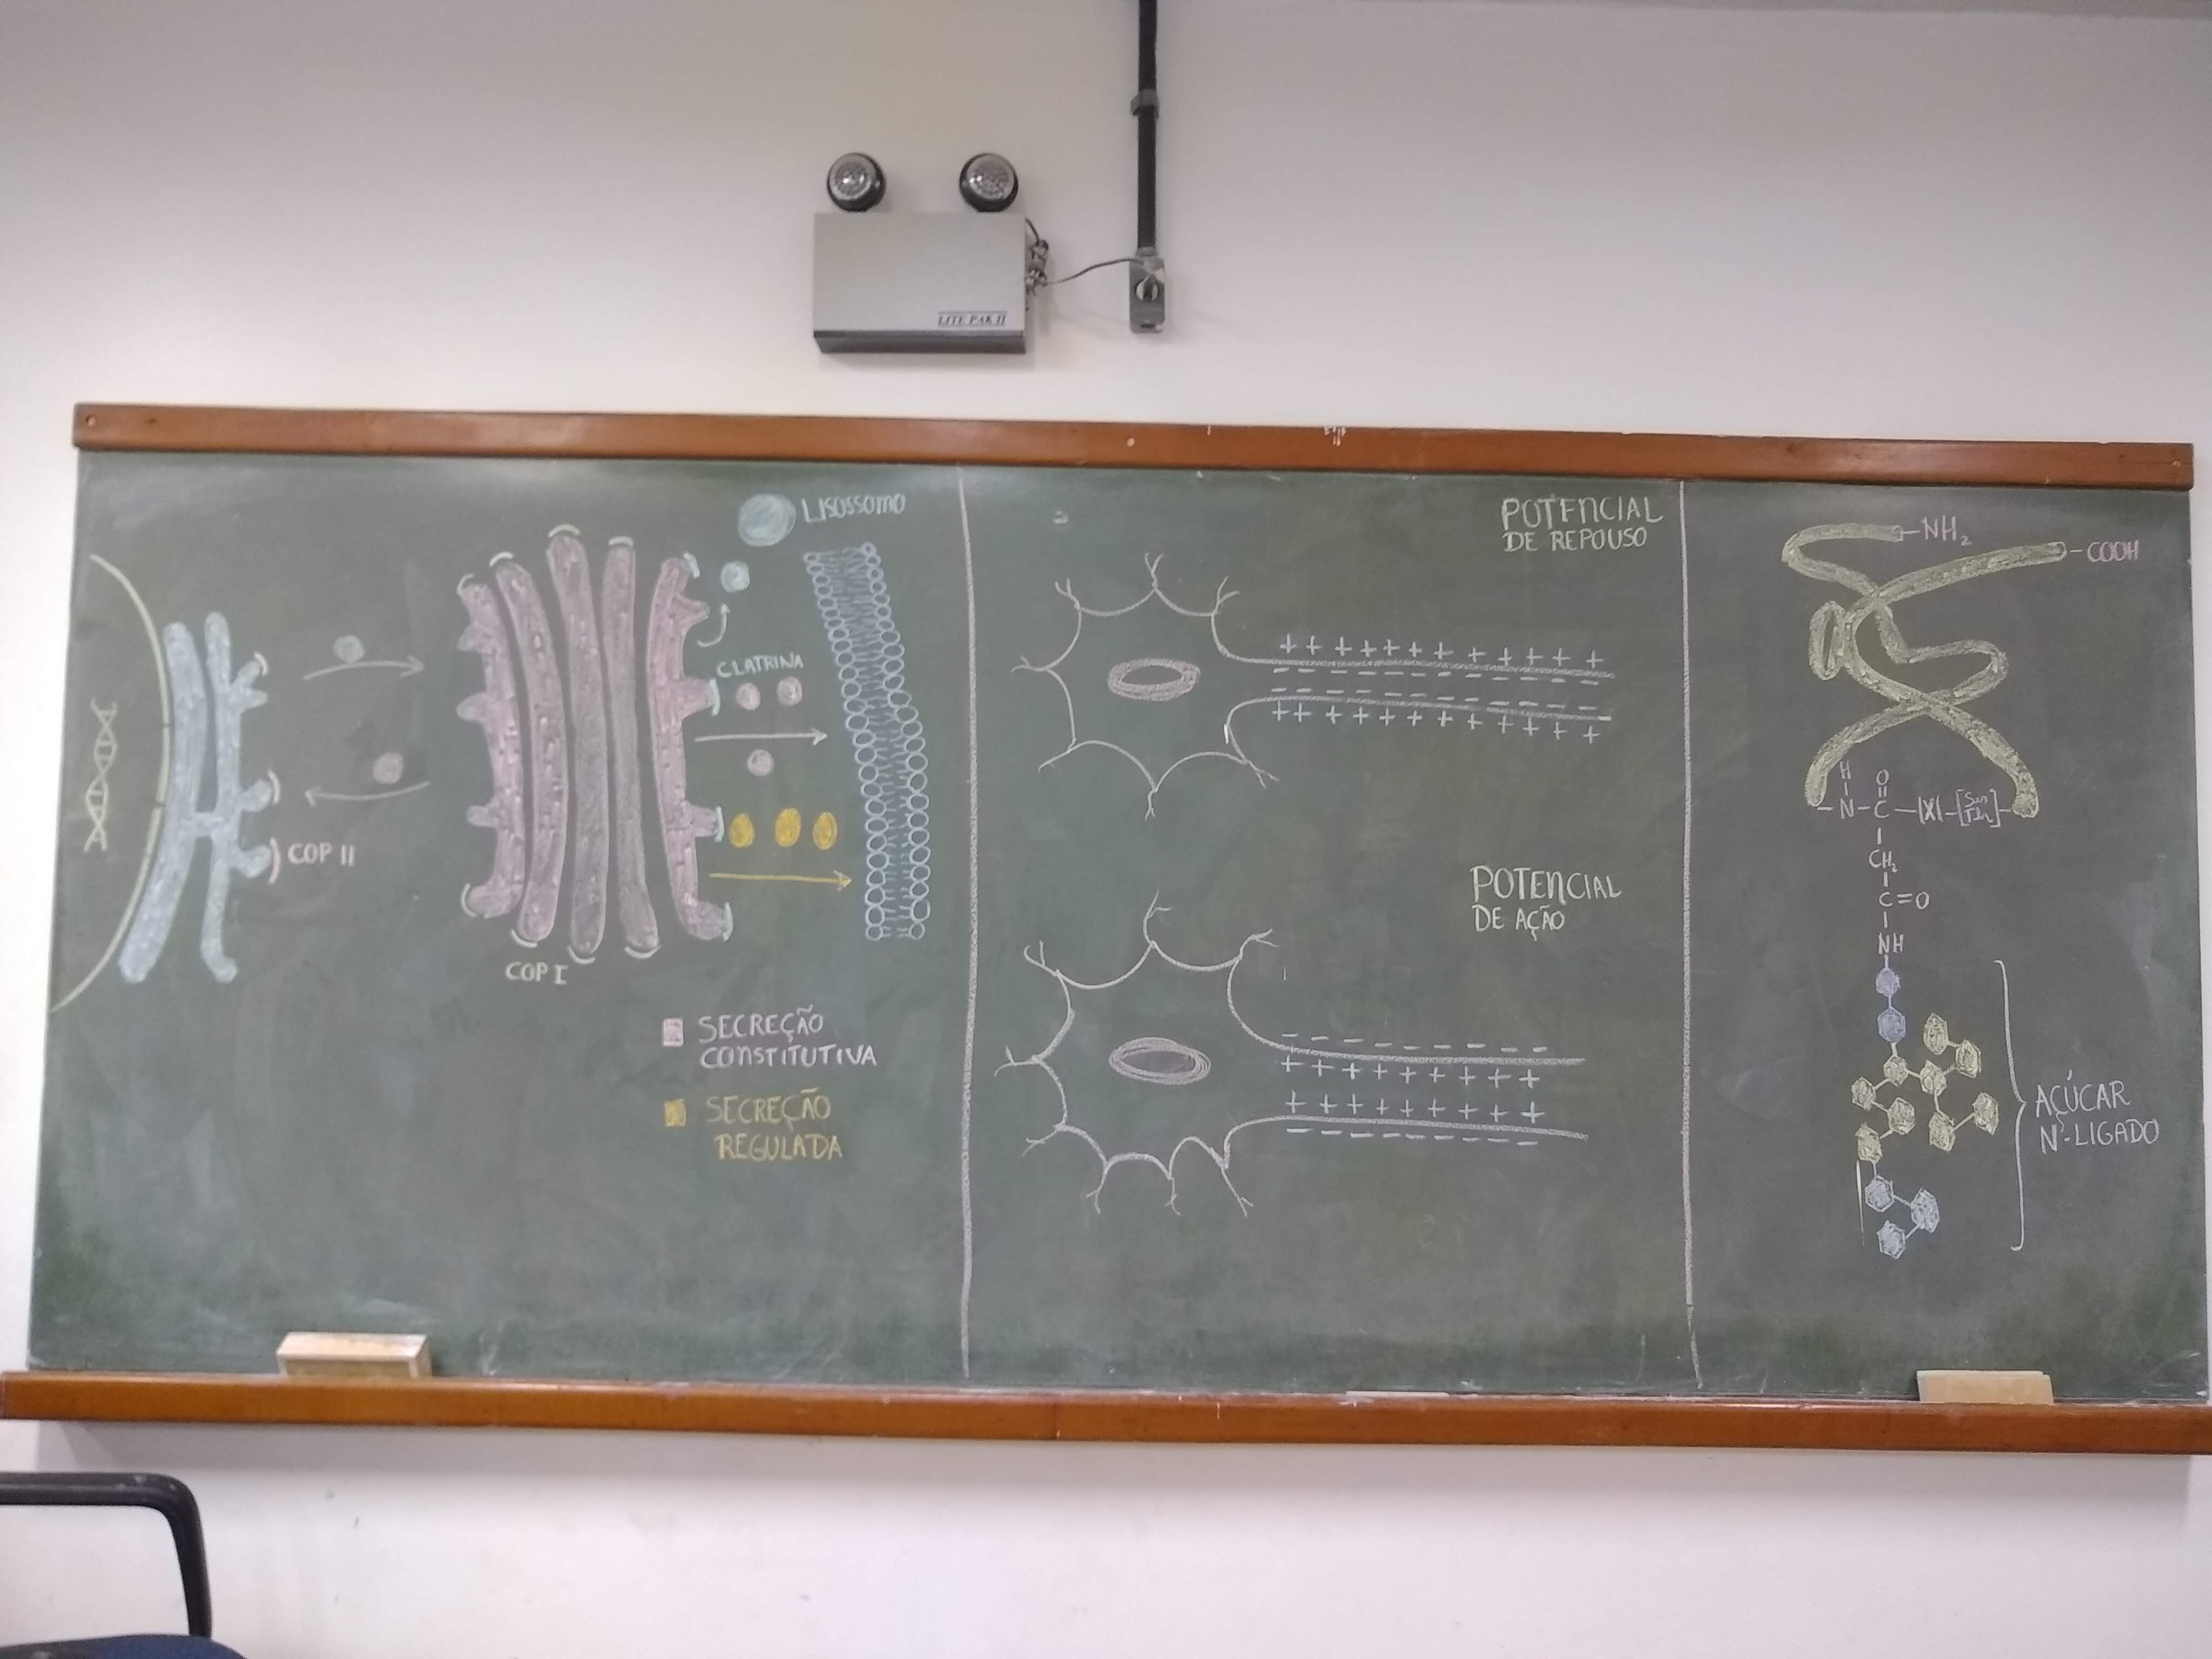 LITE PAK II
LISOSSOMO
CLATRINA
COP II
COP I
SECREÇÃO
CONSTITUTIVA
SECREÇÃO
REGULADA
POTENCIAL
DE REPOUSO
+ + + + + + + + + + + +
- - - - - - - - - - - -
- - - - - - - - - - - -
+ + + + + + + + + + + +
POTENCIAL
DE AÇÃO
- - - - - - - - -
+ + + + + + + + +
+ + + + + + + + +
- - - - - - - - -
-NH₂
-COOH
H O
-N-C-|X|-[Ser
Thr]-
CH₂
C=O
NH
AÇÚCAR
N-LIGADO